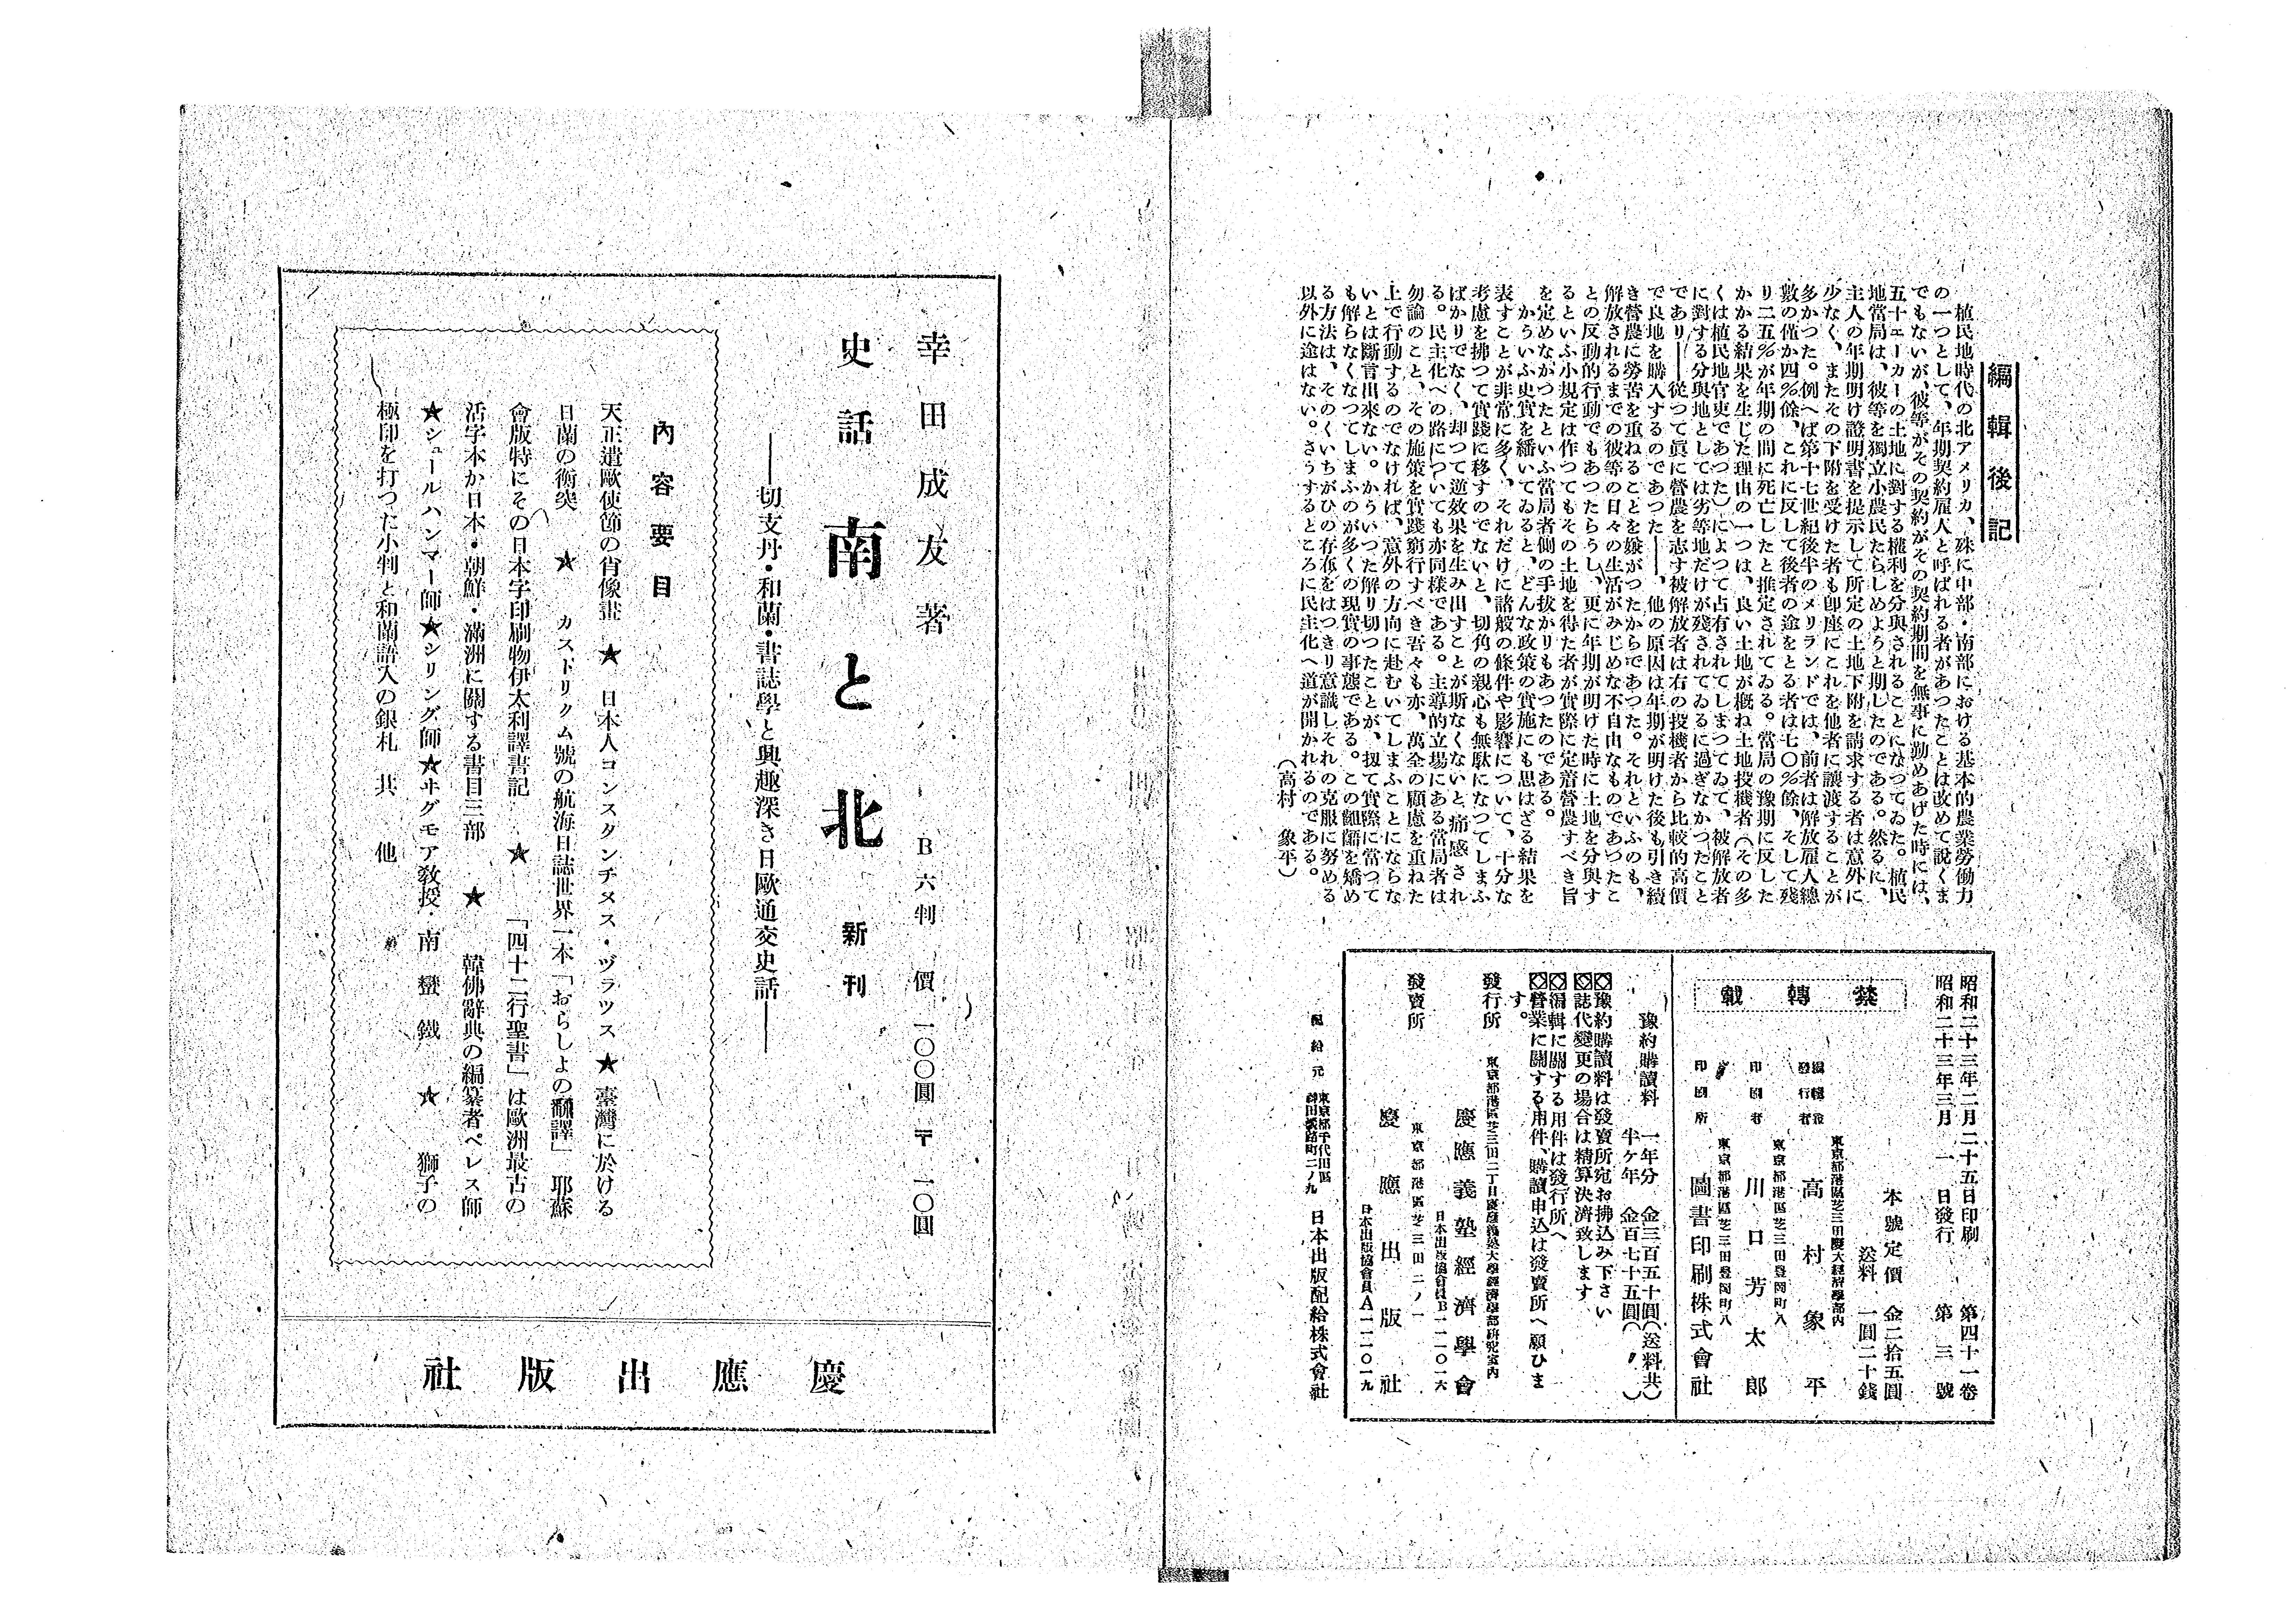 編輯後記
植民地時代の北アメリカ、殊に中部・南部における基本的農業勞働力
の一つとして、年期契約雇人と呼ばれる者があつたことは改めて說くま
でもないが、彼等がその契約がその契約期間を無事に勤めあげた時には、
五十エーカーの土地に對する權利を分與されることになつてゐた。植民
地當局は、彼等を獨立小農民たらしめようと期したのである。然るに、
主人の年期明け證明書を提示して所定の土地下附を請求する者は意外に
少なく、またその下附を受けた者も卽座にこれを他者に讓渡することが
多かつた。例へば第十七世紀後半のメリランドでは、前者は解放雇人總
數の僅か四％餘、これに反して後者の途をとる者は七〇％餘、そして殘
り二五％が年期の間に死亡したと推定されてゐる。當局の豫期に反した
かかる結果を生じた理由の一つは、良い土地が槪ね土地投機者（その多
くは植民地官吏であつた）によつて占有されてしまつてゐて、被解放者
に對する分與地としては劣等地だけが殘されてゐるに過ぎなかつたこと
であり――從つて眞に營農を志す被解放者は右の投機者から比較的高價
で良地を購入するのであつた――、他の原因は年期が明けた後も引き續
き營農に勞苦を重ねることを嫌がつたからであつた。それといふのも、
解放されるまでの彼等の日々の生活がみじめな不自由なものであつたこ
との反動的行動でもあつたらうし、更に年期が明けた時に土地を分與す
るといふ小規定は作つてもその土地を得た者が實際に定着營農すべき旨
を定めなかつたといふ當局者側の手拔かりもあつたのである。
かういふ史實を繙いてゐると、どんな政策の實施にも思はざる結果を
表すことが非常に多く、それだけに諸般の條件や影響について、十分な
考慮を拂つて實踐に移すのでないと、切角の親心も無駄になつてしまふ
ばかりでなく、却つて逆效果を生み出すことが斯なくないと痛感され
る。民主化への路についても亦同樣である。主導的立場にある當局者は
勿論のこと、その施策を實踐窮行すべき吾々も亦、萬全の顧慮を重ねた
上で行動するのでなければ、意外の方向に赴むいてしまふことにならな
いとは斷言出來ない。からいつた解り切つたことが、扨て實際に當つて
も解らなくなつてしまふのが多くの現實の事態である。この齟齬を矯め
る方法は、そのくいちがひの存在をはつきり意識しそれの克服に努める
以外に途はない。さうするところに民主化へ道が開かれるのである。
（高村　象平）
昭和二十三年二月二十五日印刷　第四十一卷
昭和二十三年三月　一　日發行　第　三　號
本號定價　金二拾五圓
送料　一圓二十錢
禁轉載
東京都港區芝三田慶大經濟學部內
編輯兼
發行者　高村象平
東京都港區芝三田豊岡町八
印刷者　川口芳太郎
東京都港區芝三田豊岡町八
印刷所　圖書印刷株式會社
豫約購讀料　一年分　金三百五十圓（送料共）
半ケ年　金百七十五圓（　〃　）
豫約購讀料は發賣所宛お拂込み下さい
誌代變更の場合は精算決濟致します
編輯に關する用件は發行所へ
營業に關する用件、購讀申込は發賣所へ願ひま
す。
東京都港區芝三田二丁目慶應義塾大學經濟學部硏究室內
發行所　慶應義塾經濟學會
日本出版協會員B一一〇一六
東京都港區芝三田二ノ一
發賣所　慶應出版社
日本出版協會員A一一一〇一九
配給元　東京都千代田區
神田淡路町二ノ九　日本出版配給株式會社
幸田成友著　B六判　價　一〇〇圓　〒　一〇圓
史話　南と北　新刊
――切支丹・和蘭・書誌學と興趣深き日歐通交史話――
內容要目
天正遣歐使節の肖像畫　★　日本人コンスタンチヌス・ヅラツス　★　臺灣に於ける
日蘭の衝突　★　カストリクム號の航海日誌世界一本「おらしよの飜譯」　耶蘇
會版特にその日本字印刷物伊太利譯書記　★　「四十二行聖書」は歐洲最古の
活字本か日本・朝鮮・滿洲に關する書目三部　★　韓佛辭典の編纂者ペレス師
★シュールハンマー師★シリング師★ヰグモア敎授・南蠻鐵　★　獅子の
極印を打つた小判と和蘭語入の銀札　其　他
慶應出版社